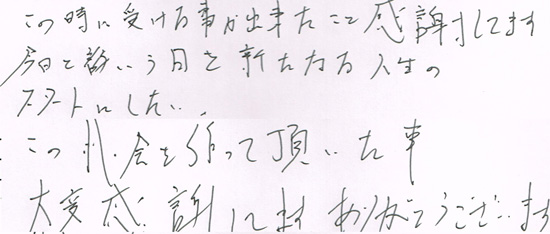 この時に受ける事が出来たこと感謝してます
今日と言いう日を新たなる人生の
スタートにしたい。
この機会を作って頂いた事
大変感謝してます ありがとうございます